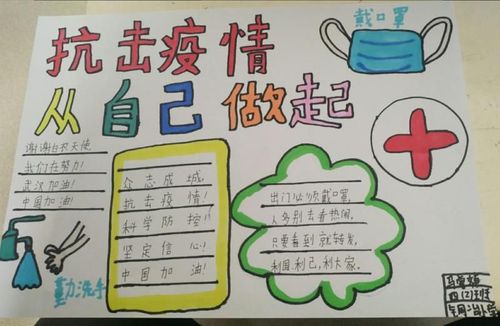 抗击疫情
从自己做起
戴口罩
谢谢白衣天使
我们在努力!
武汉加油!
中国加油!
众志成城,
抗击疫情!
科学防控!
坚定信心!
中国加油!
出门必须戴口罩,
人多别去看热闹,
只要看到就转发,
利国,利己,利大家.
勤洗手
四(2)班